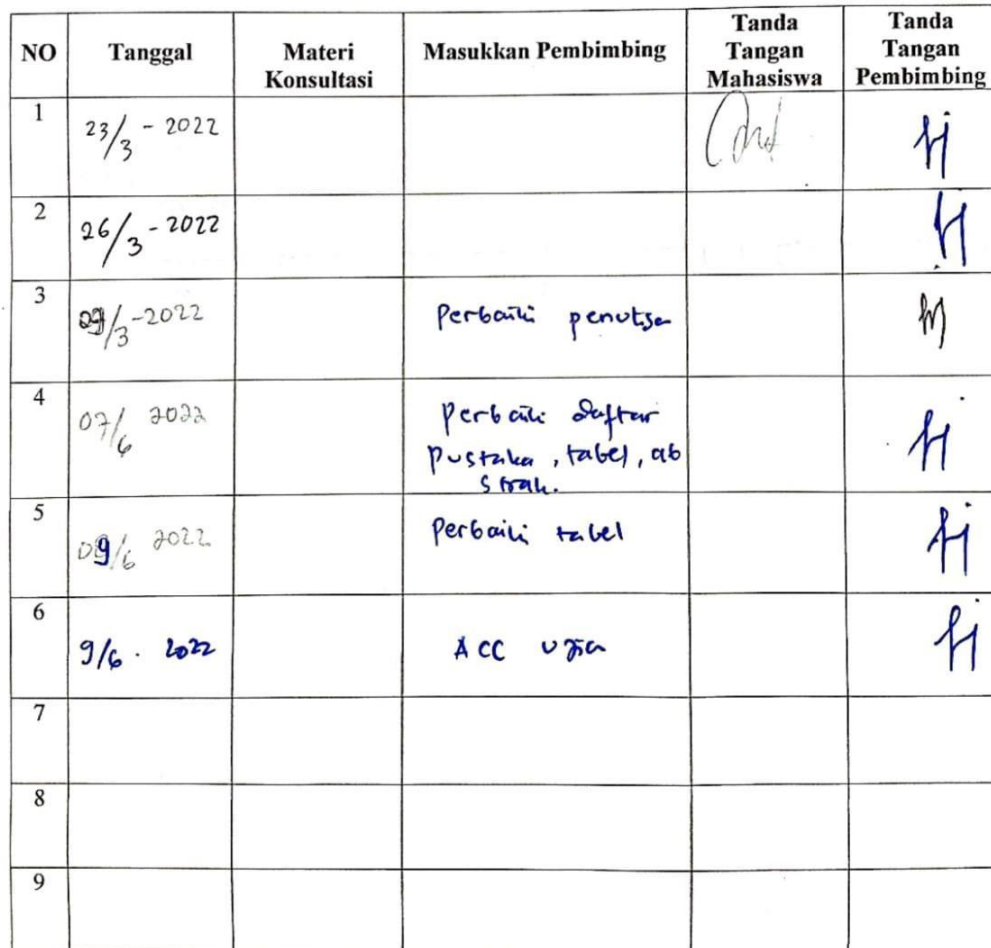 NO Tanggal Materi Konsultasi Masukkan Pembimbing Tanda Tangan Mahasiswa Tanda Tangan Pembimbing
1 23/3 - 2022
2 26/3 - 2022
3 29/3 - 2022 Perbaiki penulisa
4 07/6 2022 Perbaiki daftar
pustaka, tabel, ab
strak.
5 09/6 2022 Perbaiki tabel
6 9/6 . 2022 ACC ujia
7
8
9